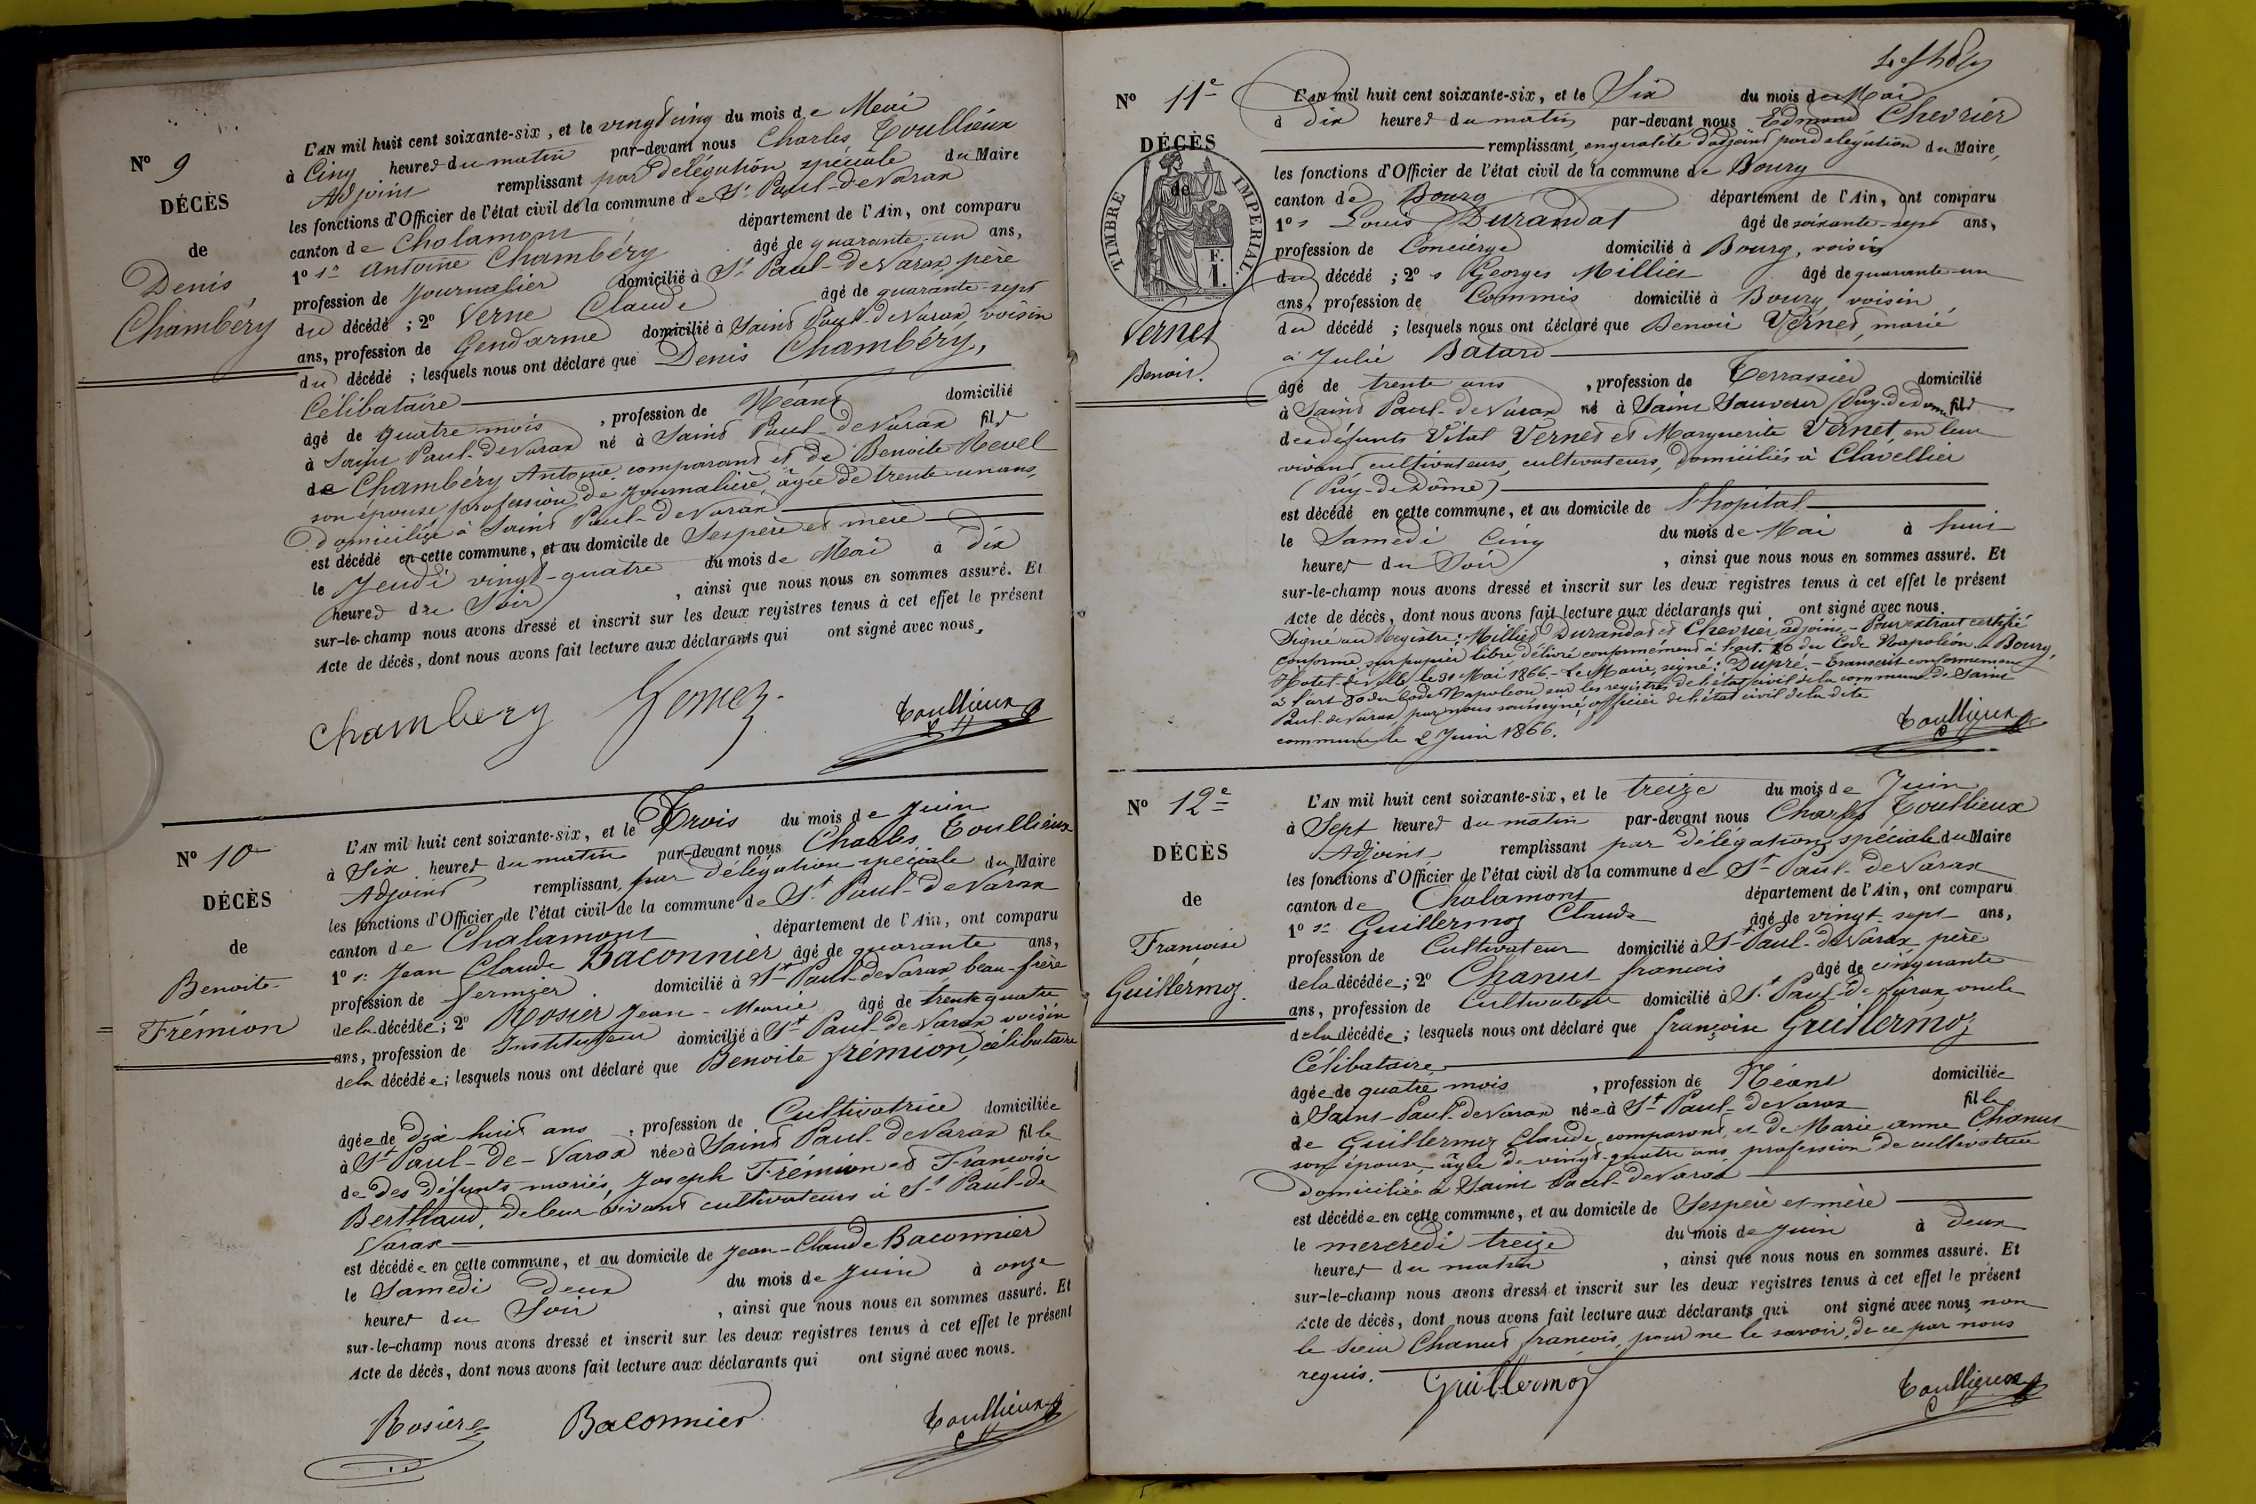 Nº 9
DÉCÈS
de
Denis
Chambéry
L'AN mil huit cent soixante-six, et le vingt cinq du mois de Mai
à Cinq heures du matin par-devant nous Charles Toullieux
Adjoint remplissant par délégation spéciale du Maire
les fonctions d'Officier de l'état civil de la commune de St Paul-de Varax
canton de Chalamont département de l'Ain, ont comparu
1º sr Antoine Chambéry âgé de quarante-un ans,
profession de Journalier domicilié à St Paul-de Varax, père
du décédé ; 2º Verne Claude âgé de quarante-sept
ans, profession de Gendarme domicilié à Saint Paul-de Varax voisin
du décédé ; lesquels nous ont déclaré que Denis Chambéry,
Célibataire
âgé de quatre mois , profession de Néant domicilié
à Saint Paul-de Varax né à Saint Paul-de Varax fils
de Chambéry Antoine comparant et de Benoite Revel
son épouse profession de Journalière, âgée de trente-un ans,
domiciliée à Saint Paul-de Varax
est décédé en cette commune, et au domicile de Ses père et mère
le Jeudi vingt-quatre du mois de Mai à dix
heures du Soir , ainsi que nous nous en sommes assuré. Et
sur-le-champ nous avons dressé et inscrit sur les deux registres tenus à cet effet le présent
Acte de décès, dont nous avons fait lecture aux déclarants qui ont signé avec nous.
Chambery Toullieux
Nº 10
DÉCÈS
de
Benoite
Frémion
L'AN mil huit cent soixante-six, et le Trois du mois de Juin
à Six heures du matin par-devant nous Charles Toullieux
Adjoint remplissant par délégation spéciale du Maire
les fonctions d'Officier de l'état civil de la commune de St Paul-de Varax
canton de Chalamont département de l'Ain, ont comparu
1º sr Jean Claude Baconnier âgé de quarante ans,
profession de fermier domicilié à St Paul-de Varax beau-frère
de la décédée ; 2º Rosier Jean-Marie âgé de trente quatre
ans, profession de Instituteur domicilié à St Paul-de Varax voisin
de la décédée ; lesquels nous ont déclaré que Benoite frémion, célibataire
âgée de dix huit ans , profession de Cultivatrice domiciliée
à St Paul-de-Varax née à Saint Paul-de Varax fille
de Des défunts mariés Joseph Frémion et Françoise
Berthaud, de leur vivant cultivateurs à St Paul-de
Varax
est décédée en cette commune, et au domicile de Jean-Claude Baconnier
le Samedi deux du mois de Juin à onze
heures du Soir , ainsi que nous nous en sommes assuré. Et
sur-le-champ nous avons dressé et inscrit sur les deux registres tenus à cet effet le présent
Acte de décès, dont nous avons fait lecture aux déclarants qui ont signé avec nous.
Rosier Baconnier Toullieux
Nº 11e
DÉCÈS
de
TIMBRE IMPÉRIAL.
F.
1.
Vernet
Benoit.
L'AN mil huit cent soixante-six, et le Six du mois de Mai
à dix heures du matin par-devant nous Edmond Chevrier
remplissant, en qualité d'adjoint par délégation du Maire,
les fonctions d'Officier de l'état civil de la commune de Bourg
canton de Bourg département de l'Ain, ont comparu
1º s Louis Durandat âgé de soixante-sept ans,
profession de Concierge domicilié à Bourg, voisin
du décédé ; 2º s Georges Millies âgé de quarante-un
ans, profession de Commis domicilié à Bourg, voisin
du décédé ; lesquels nous ont déclaré que Benoit Vernet, marié
à Julie Batard
âgé de trente ans , profession de Terrassier domicilié
à Saint Paul-de Varax né à Saint Sauveur (Puy-de-Dôme fils
des défunts Vital Vernet et Marguerite Vernet en leur
vivant cultivateurs, cultivateurs, domiciliés à Clavellier
(Puy-de Dôme)
est décédé en cette commune, et au domicile de l'hopital
le Samedi Cinq du mois de Mai à huit
heures du Soir , ainsi que nous nous en sommes assuré. Et
sur-le-champ nous avons dressé et inscrit sur les deux registres tenus à cet effet le présent
Acte de décès, dont nous avons fait lecture aux déclarants qui ont signé avec nous.
Signé au Registre : Millies Durandat et Chevrier adjoint - Pour extrait certifié
conforme, sur papier libre délivré conformément à l'art. 80 du Code Napoléon à Bourg,
Hôtel de Ville, le 31 Mai 1866. Le Maire, signé : Dupré. - Transcrit conformément
à l'art 80 du Code Napoléon, sur les registres de l'état civil de la commune de Saint
Paul-de Varax, par nous soussigné, officier de l'état civil de la dite
commune le 2 Juin 1866.
Toullieux
Nº 12e
DÉCÈS
de
Françoise
Guillermoz.
L'AN mil huit cent soixante-six, et le treize du mois de Juin
à Sept heures du matin par-devant nous Charles Toullieux
Adjoint remplissant par délégation spéciale du Maire
les fonctions d'Officier de l'état civil de la commune de St Paul-de Varax
canton de Chalamont département de l'Ain, ont comparu
1º sr Guillermoz Claude âgé de vingt sept ans,
profession de Cultivateur domicilié à St Paul-de Varax père
de la décédée ; 2º Chanut françois âgé de cinquante
ans, profession de Cultivateur domicilié à St Paul-de Varax oncle
de la décédée ; lesquels nous ont déclaré que françoise Guillermoz
Célibataire,
âgée de quatre mois , profession de Néant domiciliée
à Saint-Paul-de Varax née à St Paul-de Varax fille
de Guillermoz Claude, comparant, et de Marie anne Chanut
son épouse, âgée de vingt-quatre ans, profession de cultivatrice
domiciliée à Saint Paul-de Varax
est décédée en cette commune, et au domicile de Ses père et mère
le mercredi treize du mois de Juin à deux
heures du matin , ainsi que nous nous en sommes assuré. Et
sur-le-champ nous avons dressé et inscrit sur les deux registres tenus à cet effet le présent
Acte de décès, dont nous avons fait lecture aux déclarants qui ont signé avec nous, non
le sieur Chanut françois, pour ne le savoir, de ce par nous
requis.
Guillermoz Toullieux